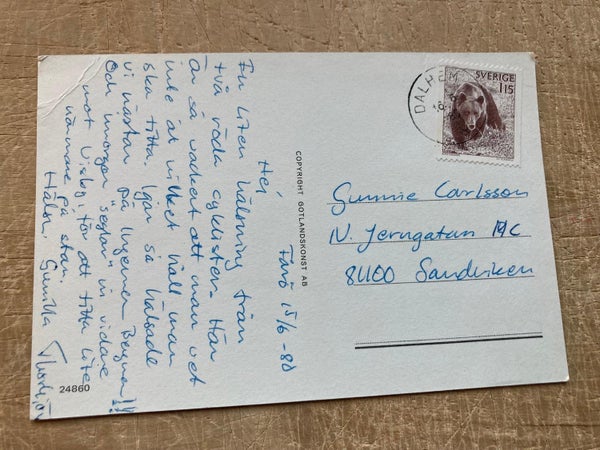 Fårö 15/6-80
Hej,
En liten hälsning från
två röda cyklister. Här
är så vackert att man vet
inte åt vilket håll man
ska titta. Igår så hälsade
vi nästan på
Och imorgon "seglar" vi vidare
mot Visby, för att titta lite
närmare på stan.
Hälsn. Gunilla
24860
COPYRIGHT GOTLANDSKONST AB
DALHEM
SVERIGE
115
Gunnie Carlsson
N. Jerngatan 19C
81100 Sandviken